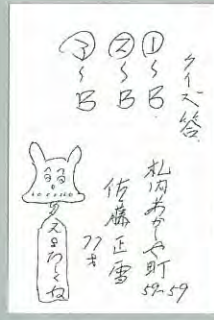 クイズ答
①〜B
②〜B
③〜B
札内あかしや町
59-59
佐藤正雪
77才
えまろしくね